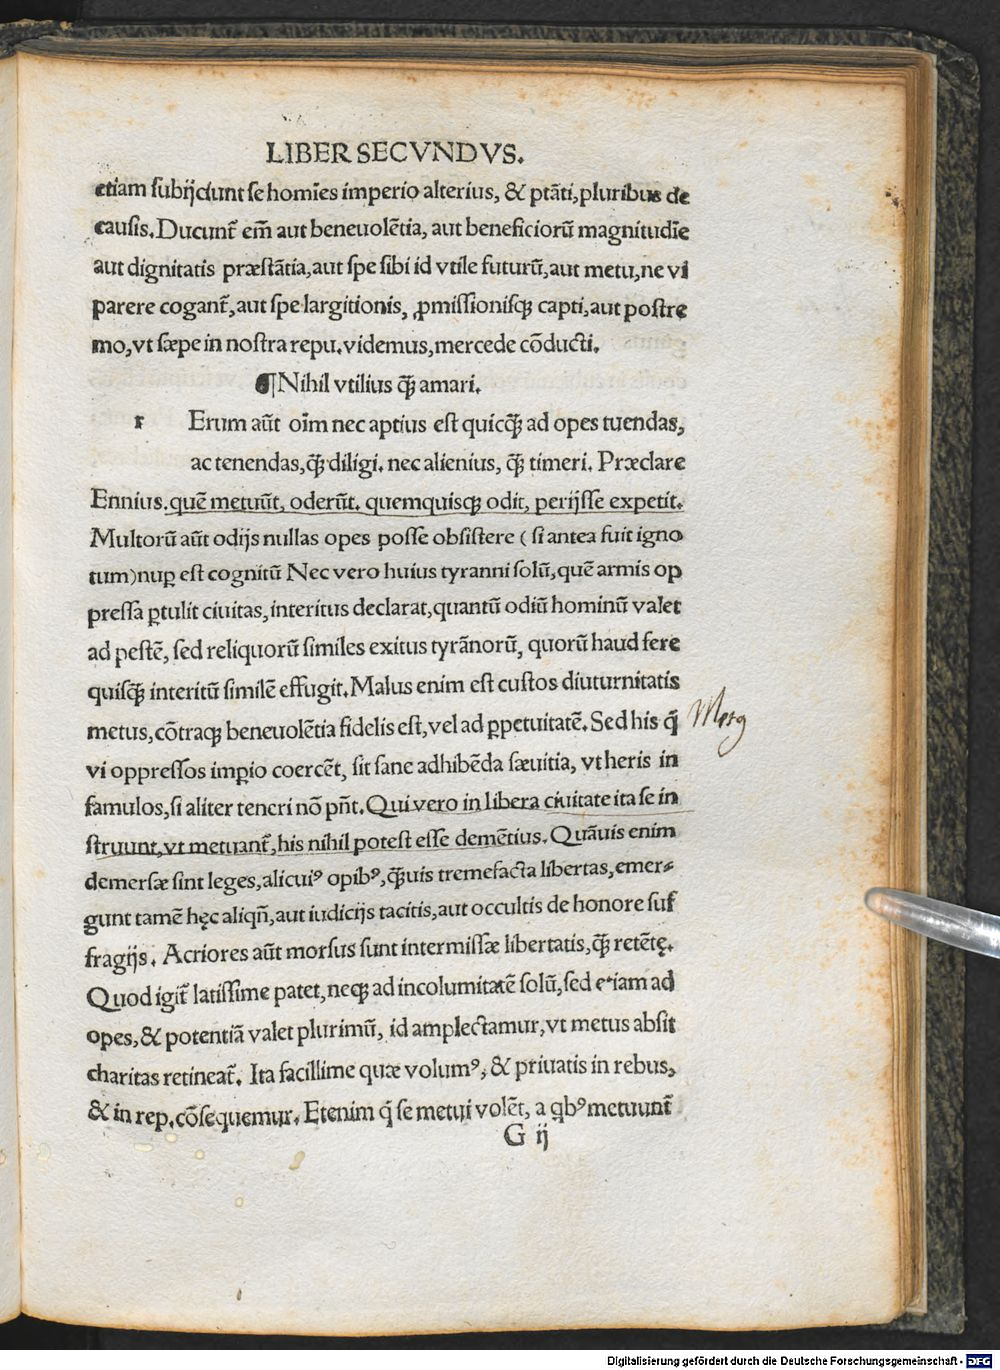 LIBER SECVNDVS.
etiam subijciunt se homīes imperio alterius, & ptāti, pluribus de
causis. Ducunt̄ em̄ aut beneuolētia, aut beneficiorū magnitudīe
aut dignitatis præstātia, aut spe sibi id vtile futurū, aut metu, ne vi
parere cogant̄, aut spe largitionis, ꝓmissionisqꝫ capti, aut postre
mo, vt sæpe in nostra repu. videmus, mercede cōducti.
¶ Nihil vtilius q̄ꝫ amari.
r Erum aūt oīm nec aptius est quicq̄ꝫ ad opes tuendas,
ac tenendas, q̄ꝫ diligi. nec alienius, q̄ꝫ timeri. Præclare
Ennius. quē metuūt, oderūt. quemquisqꝫ odit, perijsse expetit.
Multorū aūt odijs nullas opes posse obsistere ( si antea fuit igno
tum) nuꝑ est cognitū Nec vero huius tyranni solū, quē armis op
pressa ꝑtulit ciuitas, interitus declarat, quantū odiū hominū valet
ad pestē, sed reliquorū similes exitus tyrānorū, quorū haud fere
quisq̄ꝫ interitū similē effugit. Malus enim est custos diuturnitatis
metus, cōtraqꝫ beneuolētia fidelis est, vel ad ꝑpetuitatē. Sed his q̄
vi oppressos imꝑio coercēt, sit sane adhibēda sæuitia, vt heris in
famulos, si aliter teneri nō pn̄t. Qui vero in libera ciuitate ita se in
struunt, vt metuant̄, his nihil potest esse demētius. Quāuis enim
demersæ sint leges, alicuiꝰ opibꝰ, q̄ꝫuis tremefacta libertas, emer-
gunt tamē hęc aliqn̄, aut iudicijs tacitis, aut occultis de honore suf
fragijs. Acriores aūt morsus sunt intermissæ libertatis, q̄ꝫ retētę.
Quod igit̄ latissime patet, neqꝫ ad incolumitatē solū, sed etiam ad
opes, & potentiā valet plurimū, id amplectamur, vt metus absit
charitas retineat̄. Ita facillime quæ volumꝰ, & priuatis in rebus,
& in rep. cōsequemur. Etenim q̄ se metui volēt, a qbꝰ metuunt̄
G ij
Digitalisierung gefördert durch die Deutsche Forschungsgemeinschaft - DFG